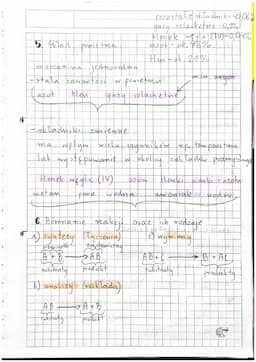 pozostałe składniki -0,06%
gazy szlachetne -0,9%
tlenek węgla (IV) -0,04%
5. Skład powietrza
azot - ok. 78%
tlen - ok. 21%
- mieszanina jednorodna
- stała zawartość w powietrzu
azot tlen gazy szlachetne
- składniki zmienne
ma wpływ wiele czynników np. temperatura
lub występowanie w okolicy zakładów przemysłu
tlenek węgla (IV) ozon tlenki siarki i azotu
metan para wodna amoniak wodór
6. Równanie reakcji oraz ich rodzaje
a) syntezy (łączenia) c) wymiany
A + B → AB AB + C → B + AC
substraty produkt substraty produkty
b) analizy (rozkładu)
AB → A + B
substraty produkt